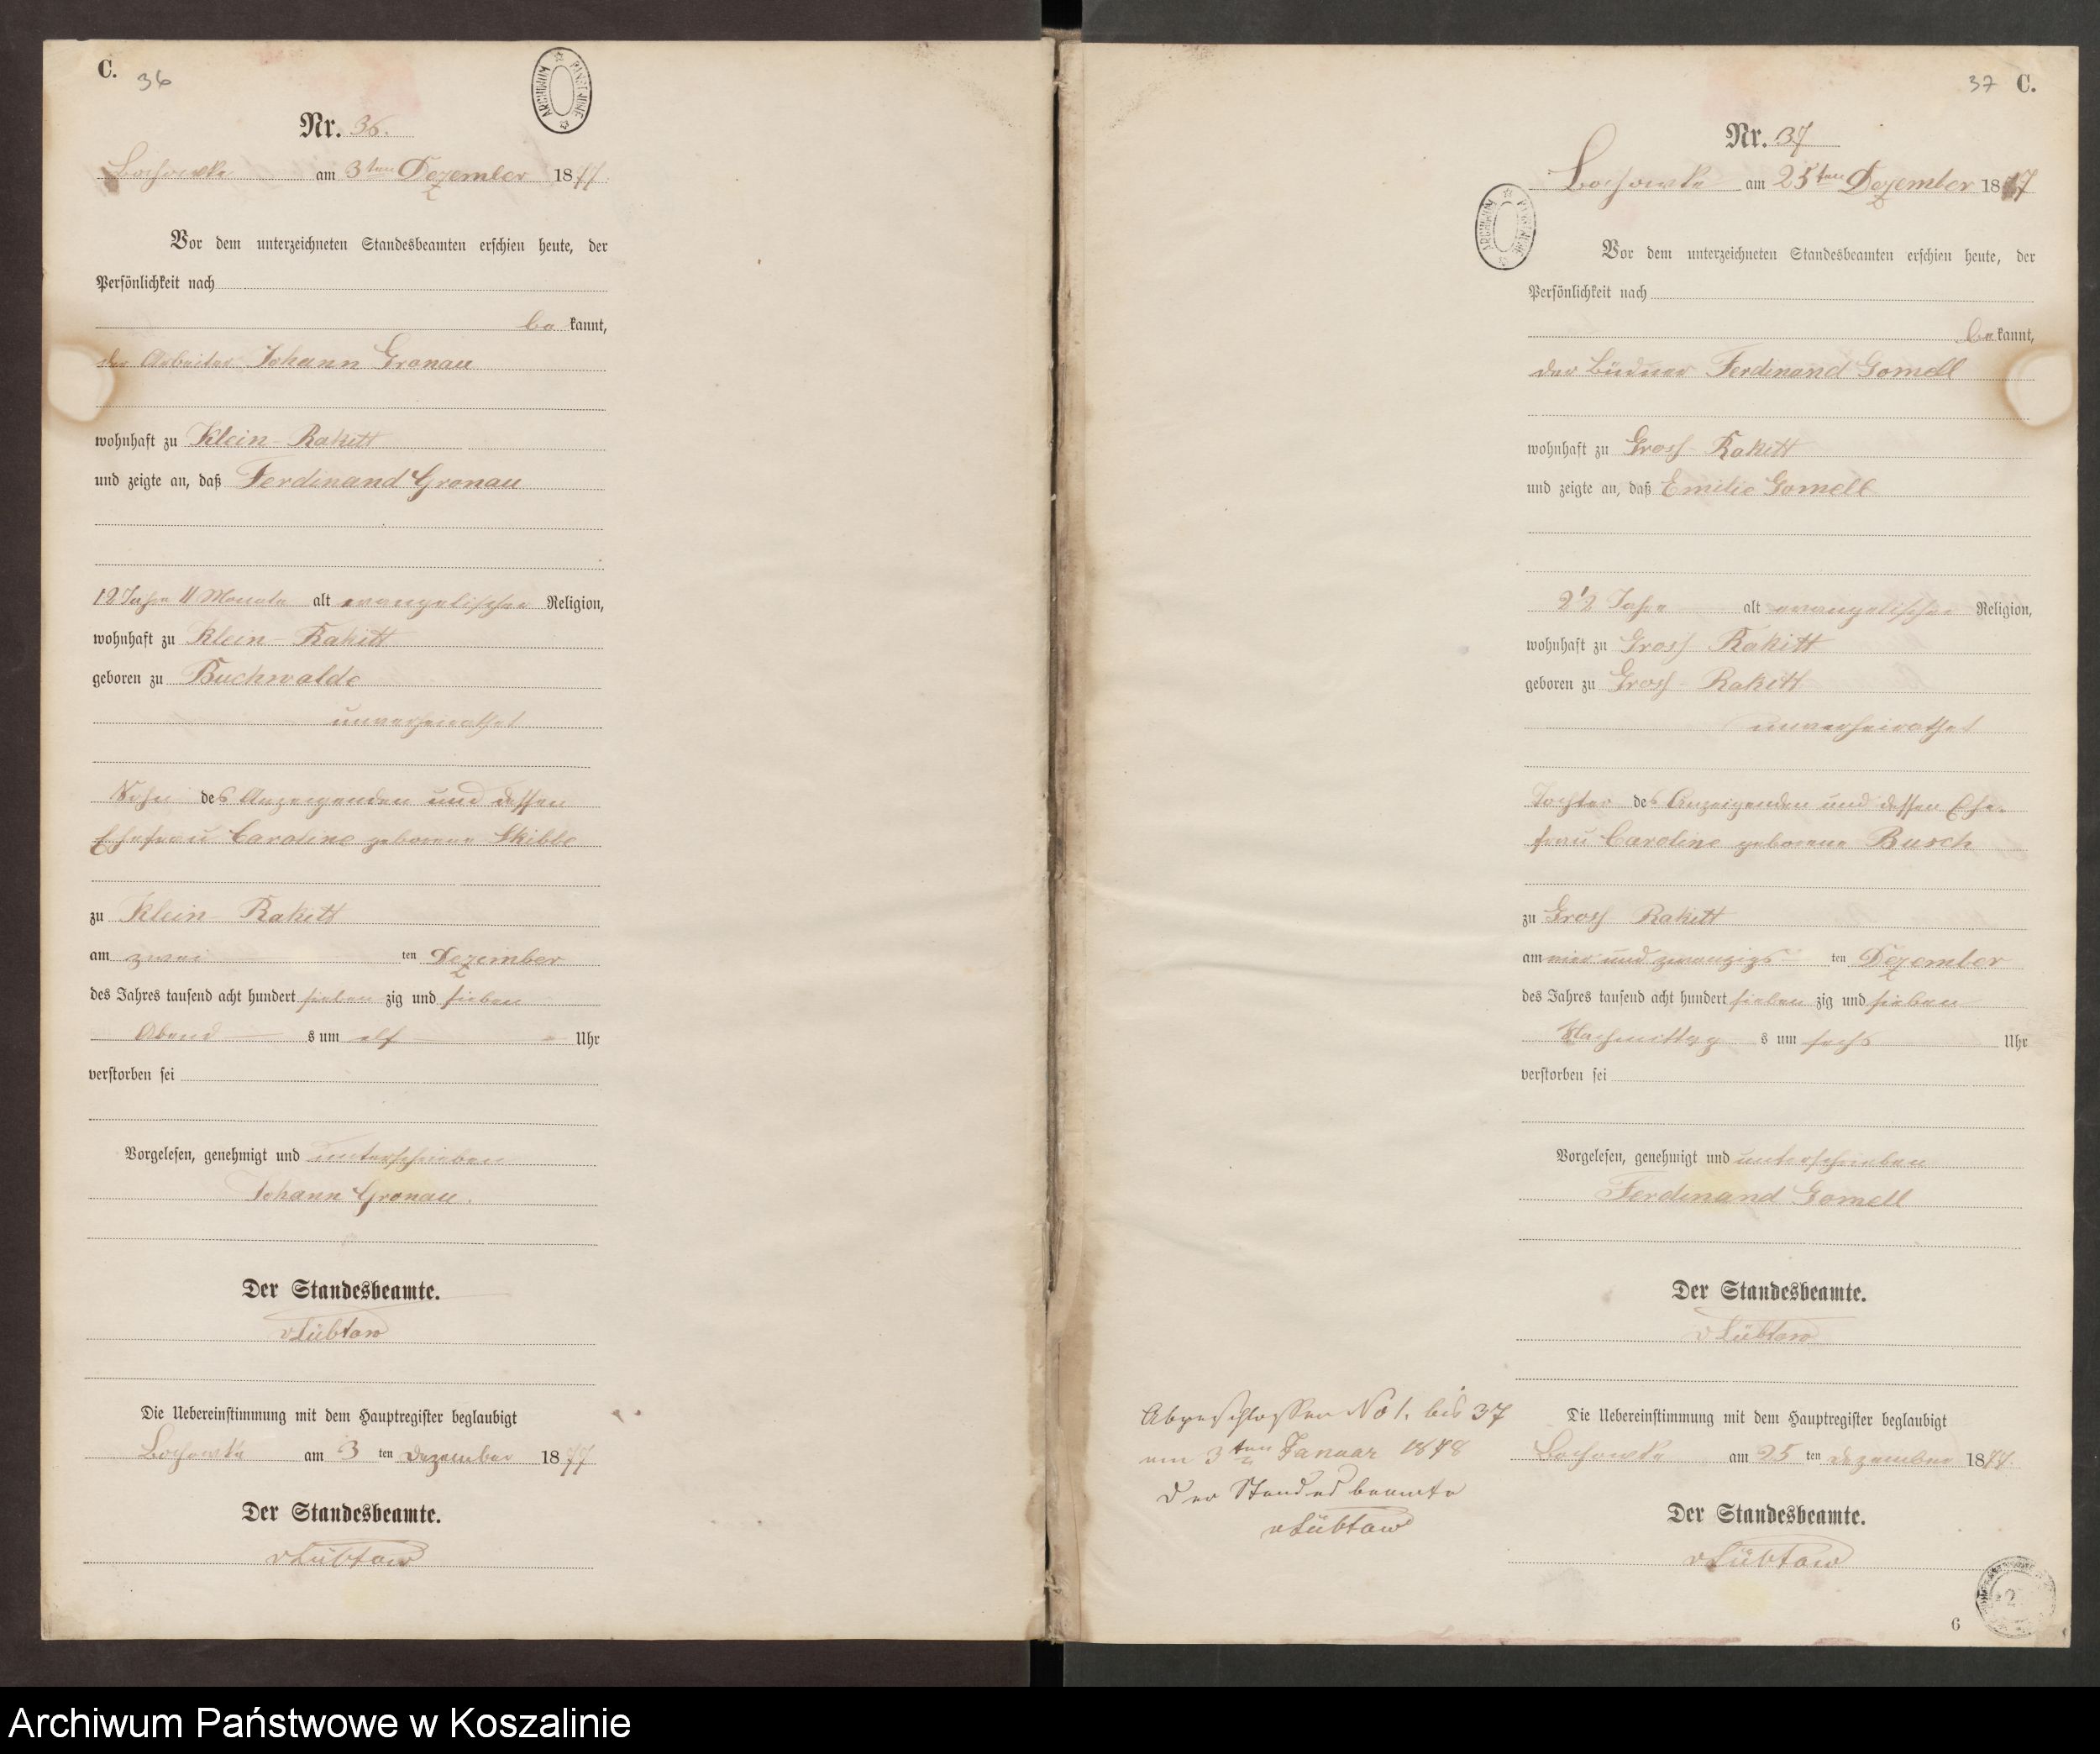 C. 36
ARCHIWUM PAŃSTWOWE
Nr. 36.
Lochowke am 3ten Dezember 1877.
Vor dem unterzeichneten Standesbeamten erschien heute, der
Persönlichkeit nach
be kannt,
der Arbeiter Johann Gronau
wohnhaft zu Klein-Rakitt
und zeigte an, daß Ferdinand Gronau
12 Jahre 11 Monate alt evangelischer Religion,
wohnhaft zu Klein-Rakitt
geboren zu Buchwalde
unverheirathet
Sohn des Anzeigenden und dessen
Ehefrau Caroline geborene Skibbe
zu Klein-Rakitt
am zwei ten Dezember
des Jahres tausend acht hundert sieben zig und sieben
Abend s um elf Uhr
verstorben sei
Vorgelesen, genehmigt und unterschrieben
Johann Gronau.
Der Standesbeamte.
vLübtow
Die Uebereinstimmung mit dem Hauptregister beglaubigt
Lochowke am 3 ten Dezember 1877
Der Standesbeamte.
vLübtow
37 C.
Nr. 37
Lochowke am 25ten Dezember 1877
ARCHIWUM PAŃSTWOWE
Vor dem unterzeichneten Standesbeamten erschien heute, der
Persönlichkeit nach
be kannt,
der Büdner Ferdinand Gomell
wohnhaft zu Gross-Rakitt
und zeigte an, daß Emilie Gomell
2 1/2 Jahre alt evangelischer Religion,
wohnhaft zu Gross Rakitt
geboren zu Gross-Rakitt
unverheirathet
Tochter des Anzeigenden und dessen Ehe-
frau Caroline geborene Busch
zu Gross Rakitt
am vier und zwanzigs ten Dezember
des Jahres tausend acht hundert sieben zig und sieben
Nachmittag s um sechs Uhr
verstorben sei
Vorgelesen, genehmigt und unterschrieben
Ferdinand Gomell
Der Standesbeamte.
vLübtow
Die Uebereinstimmung mit dem Hauptregister beglaubigt
Lochowke am 25 ten Dezember 1877.
Der Standesbeamte.
vLübtow
Abgeschlossen No 1. bis 37
am 3ten Januar 1878
Der Standesbeamte
vLübtow
6
Archiwum Państwowe w Koszalinie